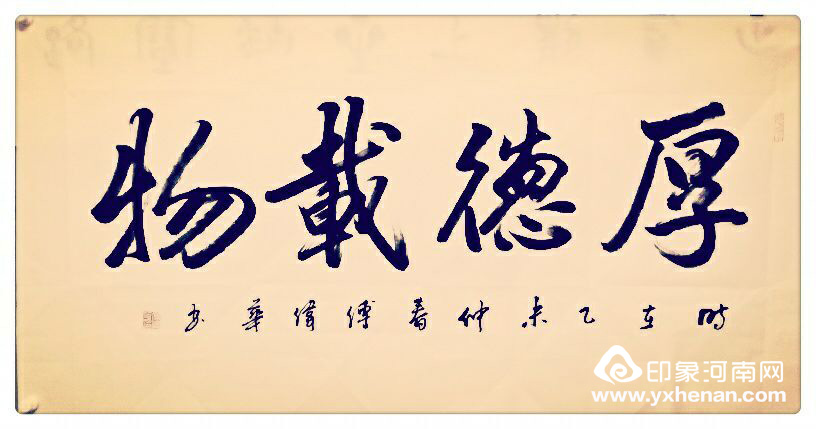 厚德載物
時在乙未仲春傅偉華書
印象河南网
www.yxhenan.com